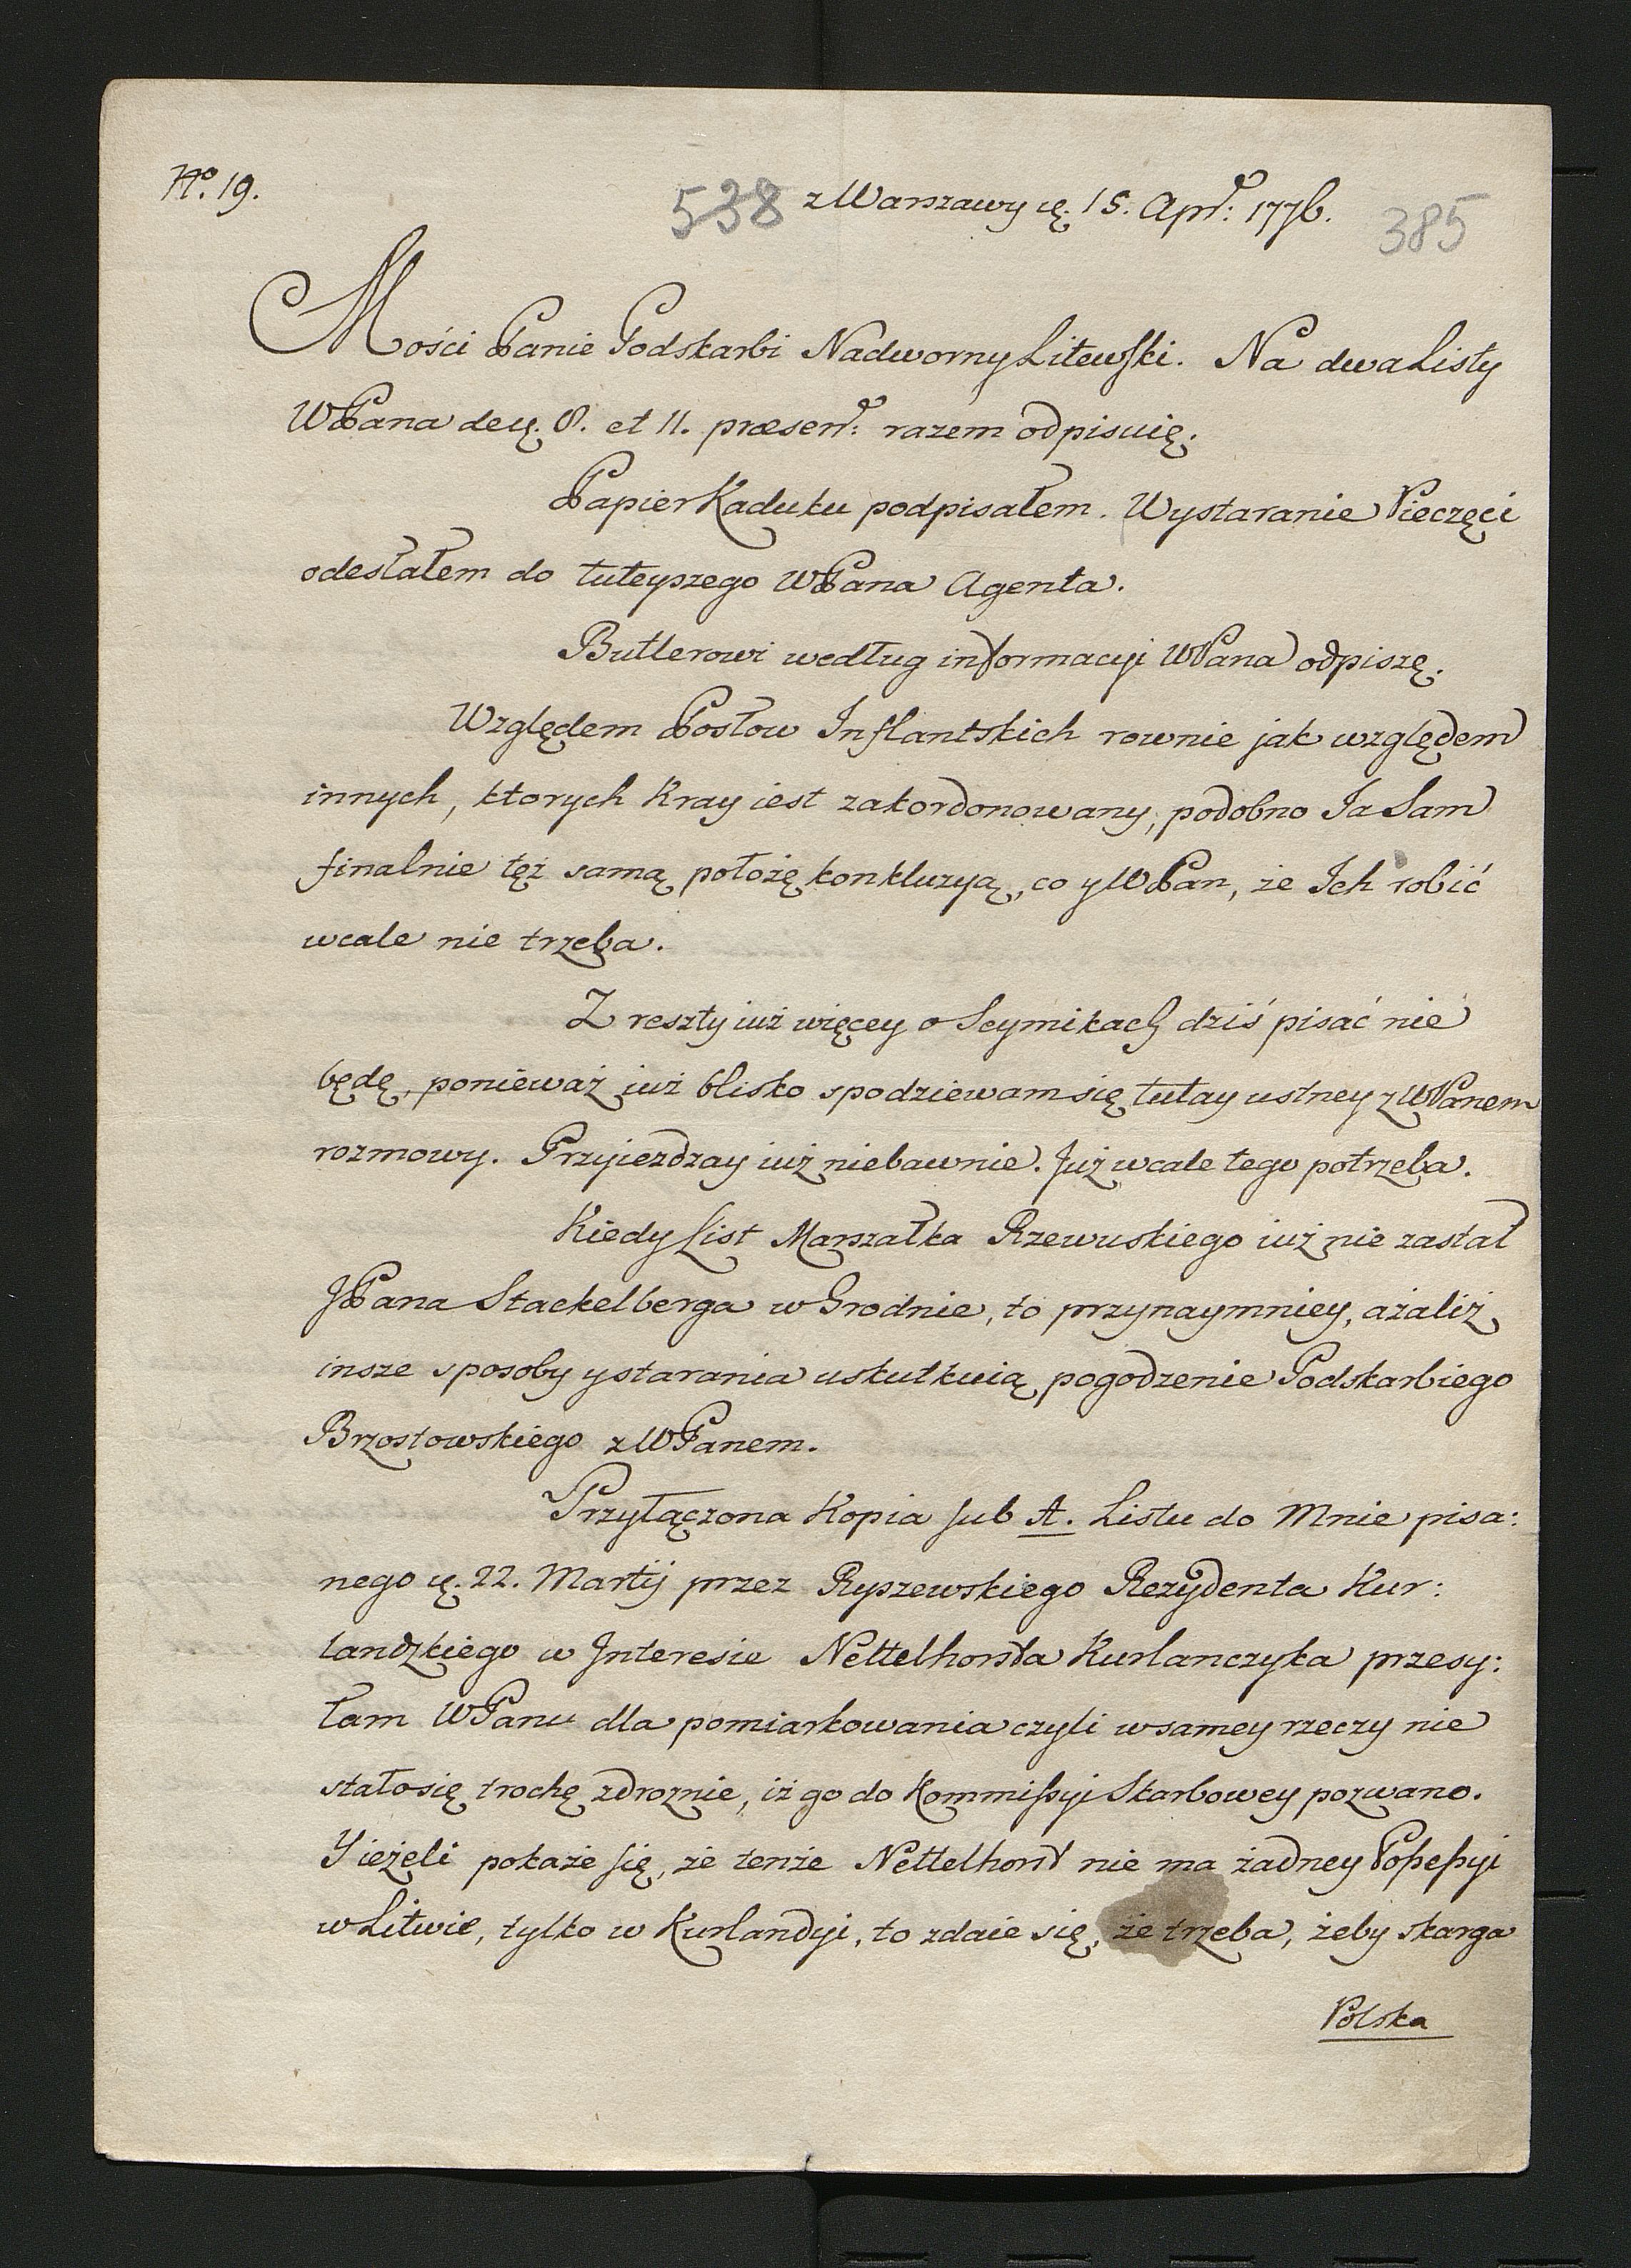 No. 19.
538 z Warszawy ę. 15. Apr: 1776. 385
Mości Panie Podskarbi Nadworny Litewski. Na dwa Listy
WPana de ę. 8. et 11. præsen: razem odpisuię.
Papier Kaduku podpisałem. Wystaranie Pieczęci
odesłałem do tuteyszego WPana Agenta.
Butlerowi według informacyi WPana odpiszę.
Względem Posłow Inflantskich rownie jak względem
innych, ktorych Kray iest zakordonowany, podobno Ja Sam
finalnie tęż samą położę konkluzyą, co y WPan, że Ich robić
wcale nie trzeba.
Z reszty iuż więcey o Seymikach dziś pisać nie
będę, ponieważ iuż blisko spodziewam się tutay ustney z WPanem
rozmowy. Przyieżdżay iuż niebawnie. Już wcale tego potrzeba.
Kiedy List Marszałka Rzewuskiego iuż nie zastał
JPana Stackelberga w Grodnie, to przynaymniey, ażaliż
insze sposoby y starania uskutkuią pogodzenie Podskarbiego
Brzostowskiego z WPanem.
Przyłączona Kopia sub A. Listu do Mnie pisa:
nego ę. 22. Martij przez Ryszewskiego Rezydenta Kur:
landzkiego w Interesie Nettelhorsta Kurlanczyka przesy:
łam WPanu dla pomiarkowania czyli w samey rzeczy nie
stało się trochę zdroznie, iż go do Kommissyi Skarbowey pozwano.
Y ieżeli pokaże się, że tenże Nettelhorst nie ma żadney Possessyi
w Litwie, tylko w Kurlandyi, to zdaie się, że trzeba, żeby skarga
Polska